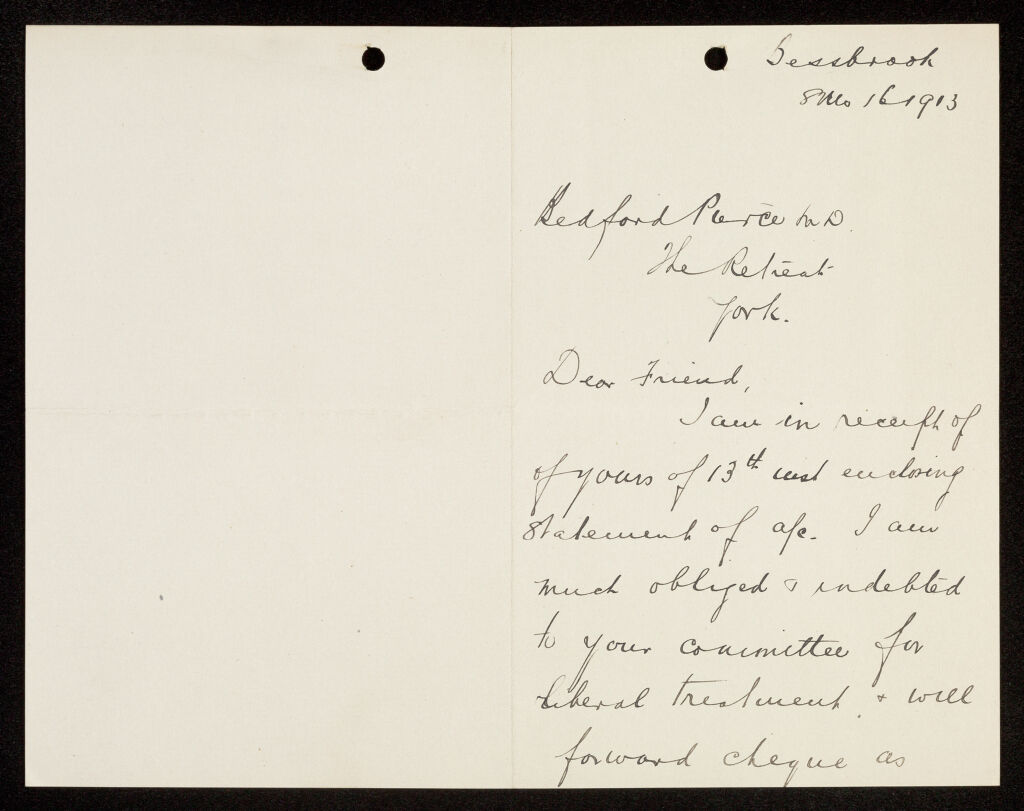 Bessbrook
8 Mo 16 1913
Bedford Pierce M D.
The Retreat
York.
Dear Friend,
I am in receipt of
of yours of 13th inst enclosing
statement of a/c. I am
much obliged & indebted
to your committee for
liberal treatment, & will
forward cheque as